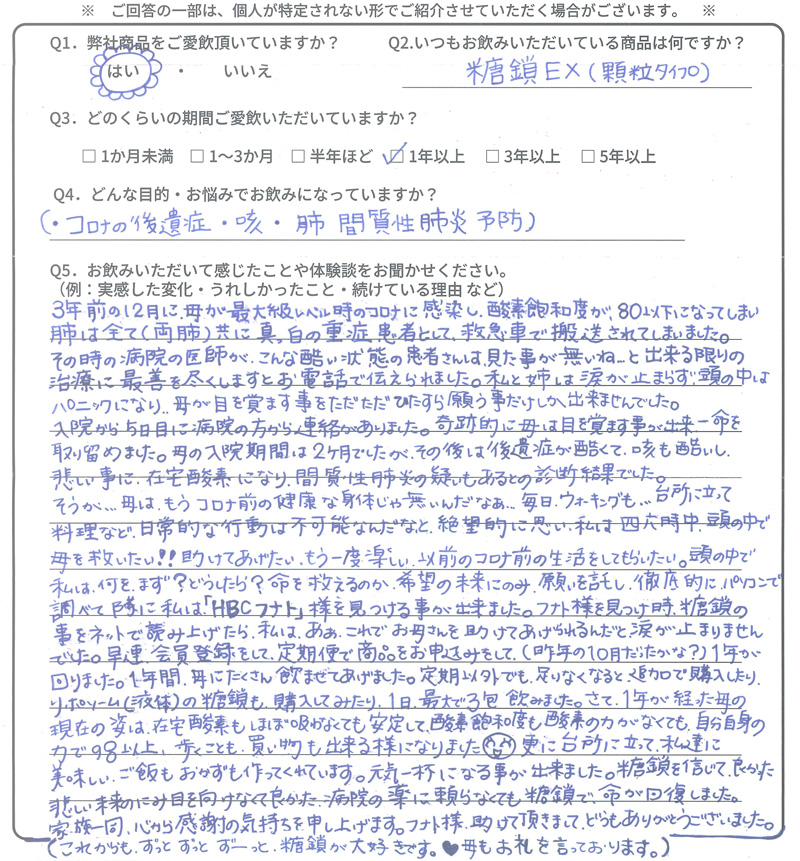 ※ ご回答の一部は、個人が特定されない形でご紹介させていただく場合がございます。 ※
Q1. 弊社商品をご愛飲頂いていますか？ Q2.いつもお飲みいただいている商品は何ですか？
はい ・ いいえ 糖鎖EX(顆粒タイプ)
Q3. どのくらいの期間ご愛飲いただいていますか？
□ 1か月未満 □ 1～3か月 □ 半年ほど ☑ 1年以上 □ 3年以上 □ 5年以上
Q4. どんな目的・お悩みでお飲みになっていますか？
(・コロナの後遺症・咳・肺 間質性肺炎 予防)
Q5. お飲みいただいて感じたことや体験談をお聞かせください。
（例：実感した変化・うれしかったこと・続けている理由 など）
3年前の12月に、母が最大級レベル時のコロナに感染し、酸素飽和度が、80以下になってしまい
肺は全て(両肺)共に真っ白の重症患者として、救急車で搬送されてしまいました。
その時の病院の医師が、こんな酷い状態の患者さんは、見た事が無いね…と出来る限りの
治療に最善を尽くしますとお電話で伝えられました。私と姉は涙が止まらず、頭の中は
パニックになり、母が目を覚ます事をただただひたすら願う事だけしか、出来ませんでした。
入院から5日目に病院の方から連絡がありました。奇跡的に母は目を覚ます事が出来一命を
取り留めました。母の入院期間は2ヶ月でしたが、その後は後遺症が酷くて、咳も酷いし、
悲しい事に、在宅酸素になり、間質性肺炎の疑いもあるとの診断結果でした。
そうか…、母は、もうコロナ前の健康な身体じゃ無いんだなぁ…、毎日、ウォーキングも…、台所に立って
料理など、日常的な行動は不可能なんだなと、絶望的に思い、私は四六時中、頭の中で
母を救いたい!!助けてあげたい、もう一度楽しい、以前のコロナ前の生活をしてもらいたい。頭の中で
私は、何を、まず?どうしたら?命を救えるのか、希望の未来にのみ、願いを託し、徹底的に、パソコンで
調べて隊に私は、「HBCフナト」様を見つける事が出来ました。フナト様を見つけ時、糖鎖の
事をネットで読み上げたら、私は、あぁ、これでお母さんを助けてあげられるんだと、涙が止まりません
でした。早速、会員登録をして、定期便で商品をお申込みをして、(昨年の10月だったかな?)1年が
回りました。1年間、母にたくさん飲ませてあげました。定期以外でも、足りなくなると、追加で購入したり、
リポソーム(液体)の糖鎖も、購入してみたり、1日、最大で3包飲みました。さて、1年が経った母の
現在の姿は、在宅酸素もほぼ吸わなくても安定して、酸素飽和度も酸素の力がなくても、自分自身の
力で98以上、歩くことも、買い物も出来る様になりました 更に台所に立って、私達に
美味しい、ご飯もおかずも作ってくれています。元気一杯になる事が出来ました。糖鎖を信じて、良かった
悲しい未来のにみ目を向けなくて良かった、病院の薬に頼らなくても糖鎖で、命が回復しました。
家族一同、心から感謝の気持ちを申し上げます。フナト様、助けて頂きまして、どうもありがとうございました。
(これからも、ずっとずっとずーっと、糖鎖が大好きです。♥母もお礼を言っております。)